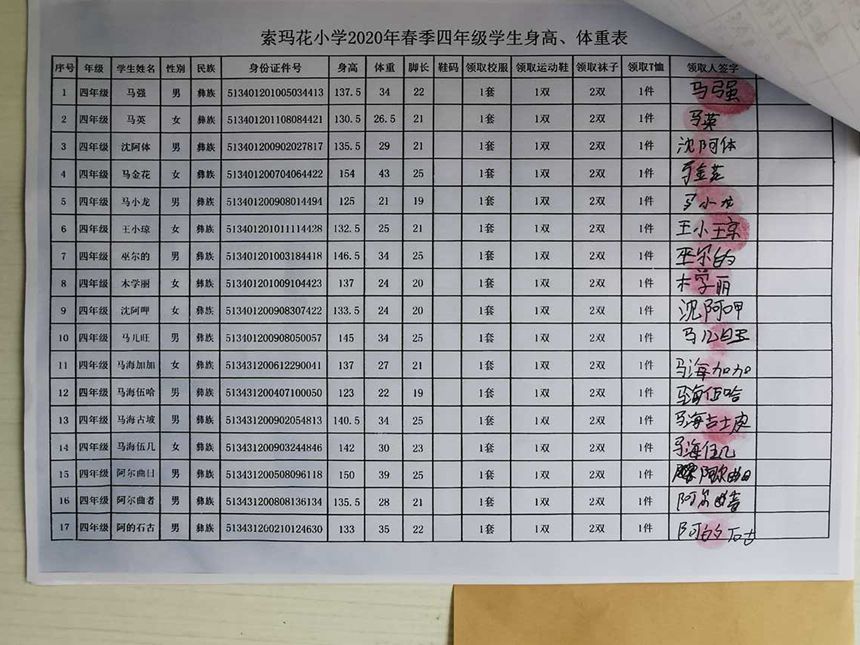 索玛花小学2020年春季四年级学生身高、体重表
序号 年级 学生姓名 性别 民族 身份证件号 身高 体重 脚长 鞋码 领取校服 领取运动鞋 领取袜子 领取T恤 领取人签字
1 四年级 马强 男 彝族 513401201005034413 137.5 34 22 1套 1双 2双 1件 马强
2 四年级 马英 女 彝族 513401201108084421 130.5 26.5 21 1套 1双 2双 1件 马英
3 四年级 沈阿体 男 彝族 513401200902027817 135.5 29 21 1套 1双 2双 1件 沈阿体
4 四年级 马金花 女 彝族 513401200704064422 154 43 25 1套 1双 2双 1件
5 四年级 马小龙 男 彝族 513401200908014494 125 21 19 1套 1双 2双 1件 马小龙
6 四年级 王小琼 女 彝族 513401201011114428 132.5 25 21 1套 1双 2双 1件 王小琼
7 四年级 巫尔的 男 彝族 513401201003184418 146.5 34 25 1套 1双 2双 1件 巫尔的
8 四年级 木学丽 女 彝族 513401201009104423 137 24 20 1套 1双 2双 1件 木学丽
9 四年级 沈阿呷 女 彝族 513401200908307422 133.5 24 20 1套 1双 2双 1件 沈阿呷
10 四年级 马儿旺 男 彝族 513401200908050057 145 34 25 1套 1双 2双 1件
11 四年级 马海加加 女 彝族 513431200612290041 137 27 21 1套 1双 2双 1件 马海加加
12 四年级 马海伍哈 男 彝族 513431200407100050 123 22 19 1套 1双 2双 1件 马海伍哈
13 四年级 马海古坡 男 彝族 513431200902054813 140.5 34 25 1套 1双 2双 1件
14 四年级 马海伍几 女 彝族 513431200903244846 142 30 23 1套 1双 2双 1件 马海伍几
15 四年级 阿尔曲日 男 彝族 513431200508096118 150 39 25 1套 1双 2双 1件
16 四年级 阿尔曲者 男 彝族 513431200808136134 135.5 28 21 1套 1双 2双 1件 阿尔曲者
17 四年级 阿的石古 男 彝族 513431200210124630 133 35 22 1套 1双 2双 1件